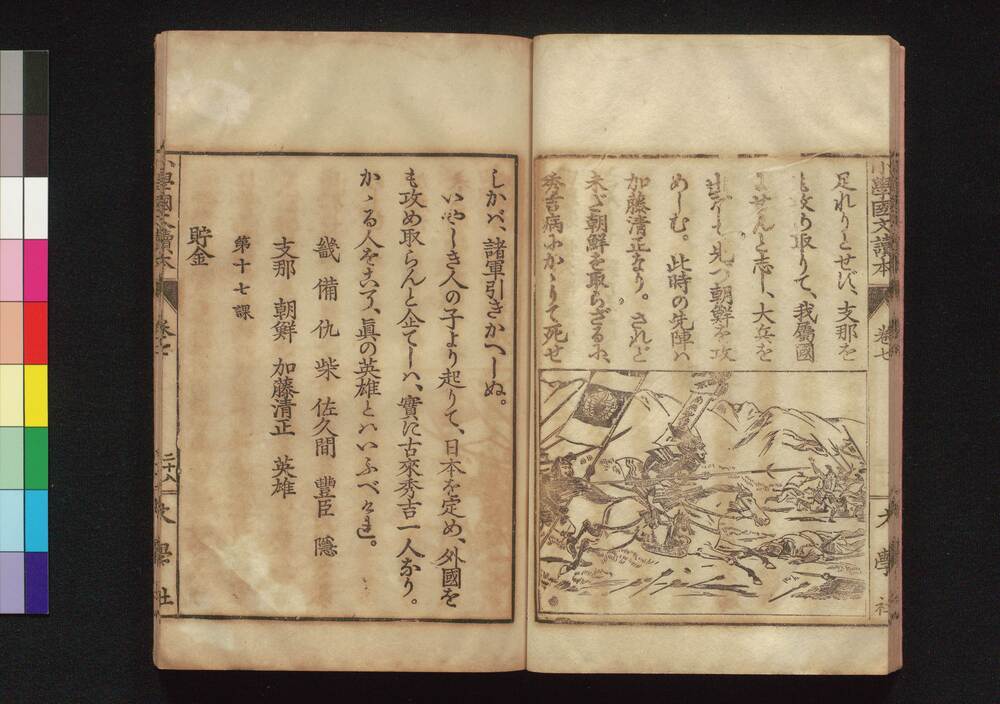 小學國文讀本
卷七
文學社
足れりとせず、支那を
も攻め取りて、我屬國
とせんと志し、大兵を
出だして、先づ朝鮮を攻
めしむ。此時の先陣ハ
加藤清正なり。されど
未だ朝鮮を取らざるに、
秀吉病にかゝりて死せ
しかバ、諸軍引きかへしぬ。
いやしき人の子より起りて、日本を定め、外國を
も攻め取らんと企てしハ、實に古來秀吉一人なり。
かゝる人をこそ、眞の英雄とハいふべけれ。
畿 備 仇 柴 佐久間 豐臣 隱
支那 朝鮮 加藤清正 英雄
第十七課
貯金
小學國文讀本
卷七
二十八
文學社